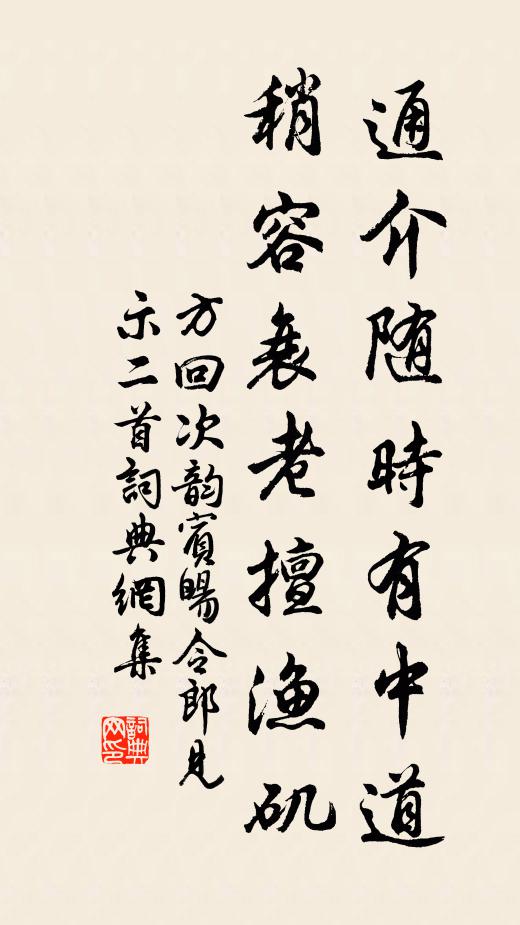 通介随時有中道
稍容衰老擅漁矶
方回次韵賓暘令郎見
示二首詞典網集
詞典网印